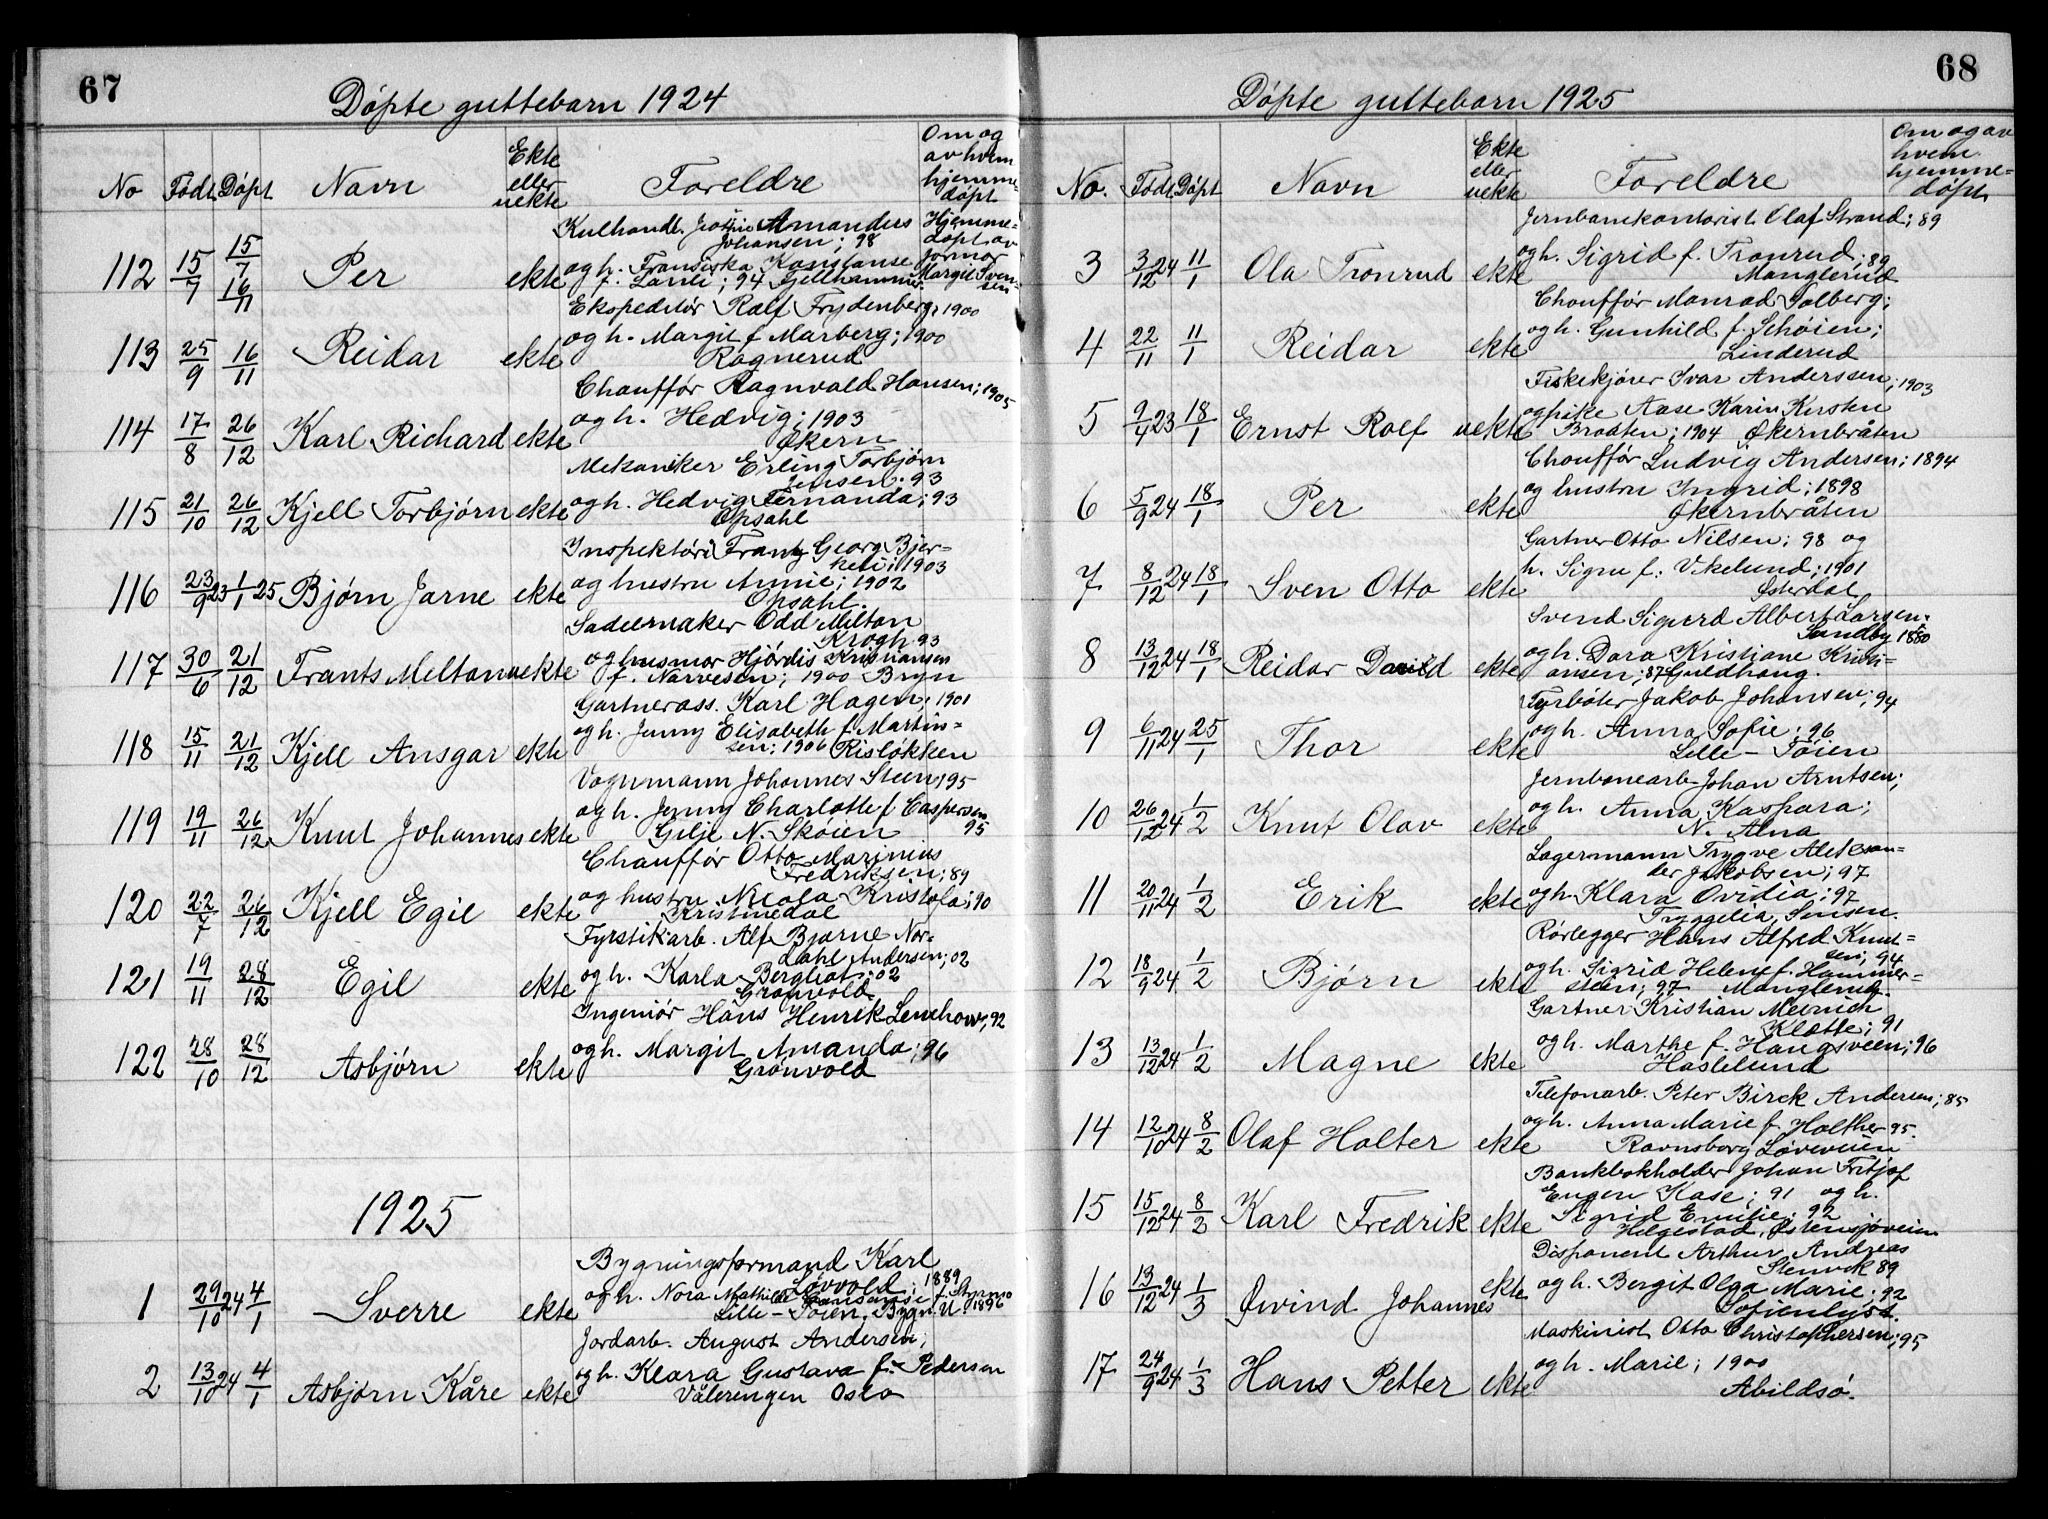 67
Døpte guttebarn 1924
No Født Døpt Navn Ekte eller uekte Foreldre Om og av hvem hjemme-døpt
Kulhandl. Amandus
Johansen; 98
112 15/7 15/7 16/11 Per ekte og h. Fransiska Konstanse
f. 94 Fjellhammer
Hjemme-
døpt av
Jormor
Margit Sven-
sen
Ekspeditør Rolf Frydenberg; 1900
113 25/9 16/11 Reidar ekte og h. Margit f. Marberg; 1900
Rognerud
Chauffør Ragnvald Hansen; 1905
114 17/8 26/12 Karl Richard ekte og h. Hedvig; 1903
Økern
Mekaniker Erling Torbjørn
Jensen; 93
115 21/10 26/12 Kjell Torbjørn ekte og h. Hedvig Fernanda; 93
Opsahl
Inspektør Frantz Georg Bjer-
1903
116 23/9 23 1/1 25 Bjørn Jarne ekte og hustru Annie; 1902
Opsahl.
Sadelmaker Odd Milton
Krogh 93
117 30/6 21/12 Frants Melton uekte og husmor Hjørdis Kristiansen
f. Narvesen; 1900 Bryn
Gartnerass. Karl Hagen; 1901
118 15/11 21/12 Kjell Ansgar ekte og h. Jenny Elisabeth f. Martin-
sen; 1906 Risløkken
Vognmann Johannes Steen, 95
119 19/11 26/12 Knut Johannes ekte og h. Jenny Charlotte f. Caspersen
Gilje N. Skøien 95
Chauffør Otto Marinius
Fredriksen; 89
120 22/7 26/12 Kjell Egil ekte og hustru Nicola Kristofa; 90
Kristinedal
Fyrstikarb. Alf Bjarne Nor-
dahl Andersen; 02
121 19/11 28/12 Egil ekte og h. Karla Bergliot; 02
Grønvold
Ingeniør Hans Henrik Lenchow; 92
122 28/10 28/12 Asbjørn ekte og h. Margit Amanda; 96
Grønvold
1925
Bygningsformand Karl
Løvvold; 1889
1 29/10 24 4/1 Sverre ekte og h. Nora Mathilde f. 1896
Lille-Tøien, Bygn. U.
Jordarb. August Andersen;
2 13/10 24 4/1 Asbjørn Kåre ekte og h. Klara Gustava f. Pedersen
Vålerengen Oslo
68
Døpte guttebarn 1925
No. Født Døpt Navn Ekte eller uekte Foreldre Om og av hvem hjemme-døpt
Jernbanekontorist Olaf Strand; 89
3 3/12 24 11/1 Ola Tronrud ekte og h. Sigrid f. Tronrud; 89
Manglerud
Chauffør Monrad Solberg;
4 22/11 11/1 Reidar ekte og h. Gunhild f. Schøien;
Linderud
Fiskekjører Ivar Anderssen; 1903
5 9/4 23 18/1 Ernst Rolf uekte og pike Aase Karin Kirsten
Braaten; 1904 Økernbråten
Chauffør Ludvig Andersen; 1894
6 5/9 24 18/1 Per ekte og hustru Ingrid; 1898
Økernbråten
Gartner Otto Nilsen; 98 og
7 8/12 24 18/1 Sven Otto ekte h. Signe f. Vikelund; 1901
Østerdal
Svend Sigurd Albert Larsen-
Sandby 1880
8 13/12 24 18/1 Reidar David ekte og h. Dora Kristiane Kristi-
ansen; 87 Guldhaug.
Fyrbøter Jakob Johansen; 94
9 6/11 24 25/1 Thor ekte og h. Anna Sofie; 96
Lille-Tøien
Jernbanearb. Johan Arntsen;
10 26/12 24 1/2 Knut Olav ekte og h. Anna Kaspara;
N. Alna
Lagermann Trygve Aleksan-
der Jakobsen; 97
11 20/11 24 1/2 Erik ekte og h. Klara Ovidia; 97
Tryggelia, Sinsen.
Rørlegger Hans Alfred Knut-
sen; 94
12 18/9 24 1/2 Bjørn ekte og h. Sigrid Helene f. Hammer-
steen; 97 Manglerud.
Gartner Kristian Meinich
Kløtte; 91
13 13/12 24 1/2 Magne ekte og h. Marthe f. Haugsveen; 96
Haslelund
Telefonarb. Peter Birck Andersen; 85
14 12/10 24 8/2 Olaf Holter ekte og h. Anna Marie f. Holther 95.
Ravnsborg Løreveien
Bankbokholder Johan Fritjof
Eugen Kase; 91 og h.
15 15/12 24 8/3 Karl Fredrik ekte Sigrid Emilie; 92
Helgestad, Østensjøveien
Disponent Arthur Andreas
Stenvik 89
16 13/12 24 1/3 Øivind Johannes ekte og h. Bergit Olga Marie; 92
Sofienlyst.
Maskinist Otto Christophersen; 95
17 24/9 24 1/3 Hans Petter ekte og h. Marie; 1900
Abildsø.